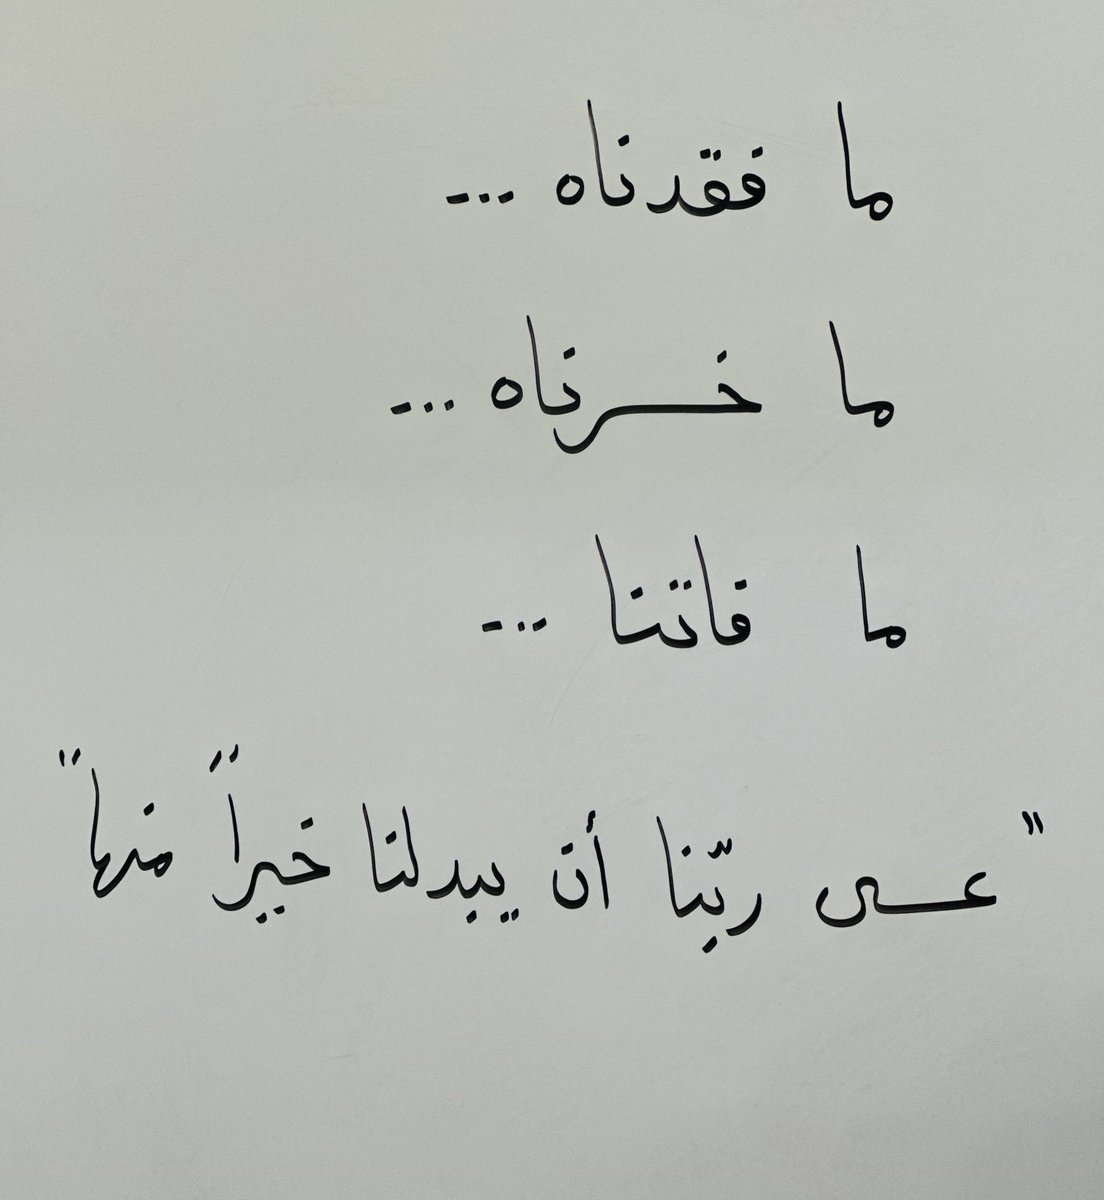 ما فقدناه ...-
ما خسرناه ...-
ما فاتنا ...-
"عسى ربّنا أن يبدلنا خيراً منها"